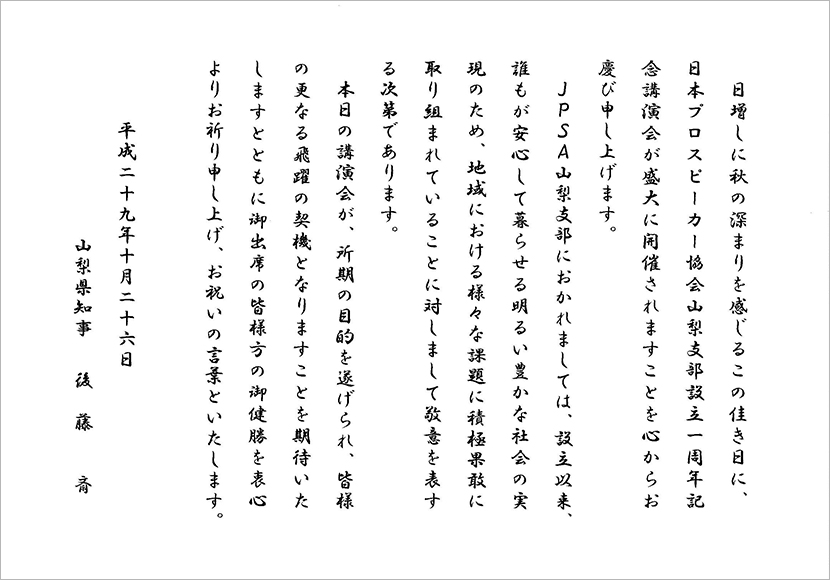 日増しに秋の深まりを感じるこの佳き日に、
日本プロスピーカー協会山梨支部設立一周年記
念講演会が盛大に開催されますことを心からお
慶び申し上げます。
ＪＰＳＡ山梨支部におかれましては、設立以来、
誰もが安心して暮らせる明るい豊かな社会の実
現のため、地域における様々な課題に積極果敢に
取り組まれていることに対しまして敬意を表す
る次第であります。
本日の講演会が、所期の目的を遂げられ、皆様
の更なる飛躍の契機となりますことを期待いた
しますとともに御出席の皆様方の御健勝を衷心
よりお祈り申し上げ、お祝いの言葉といたします。
平成二十九年十月二十六日
山梨県知事　後　藤　斎